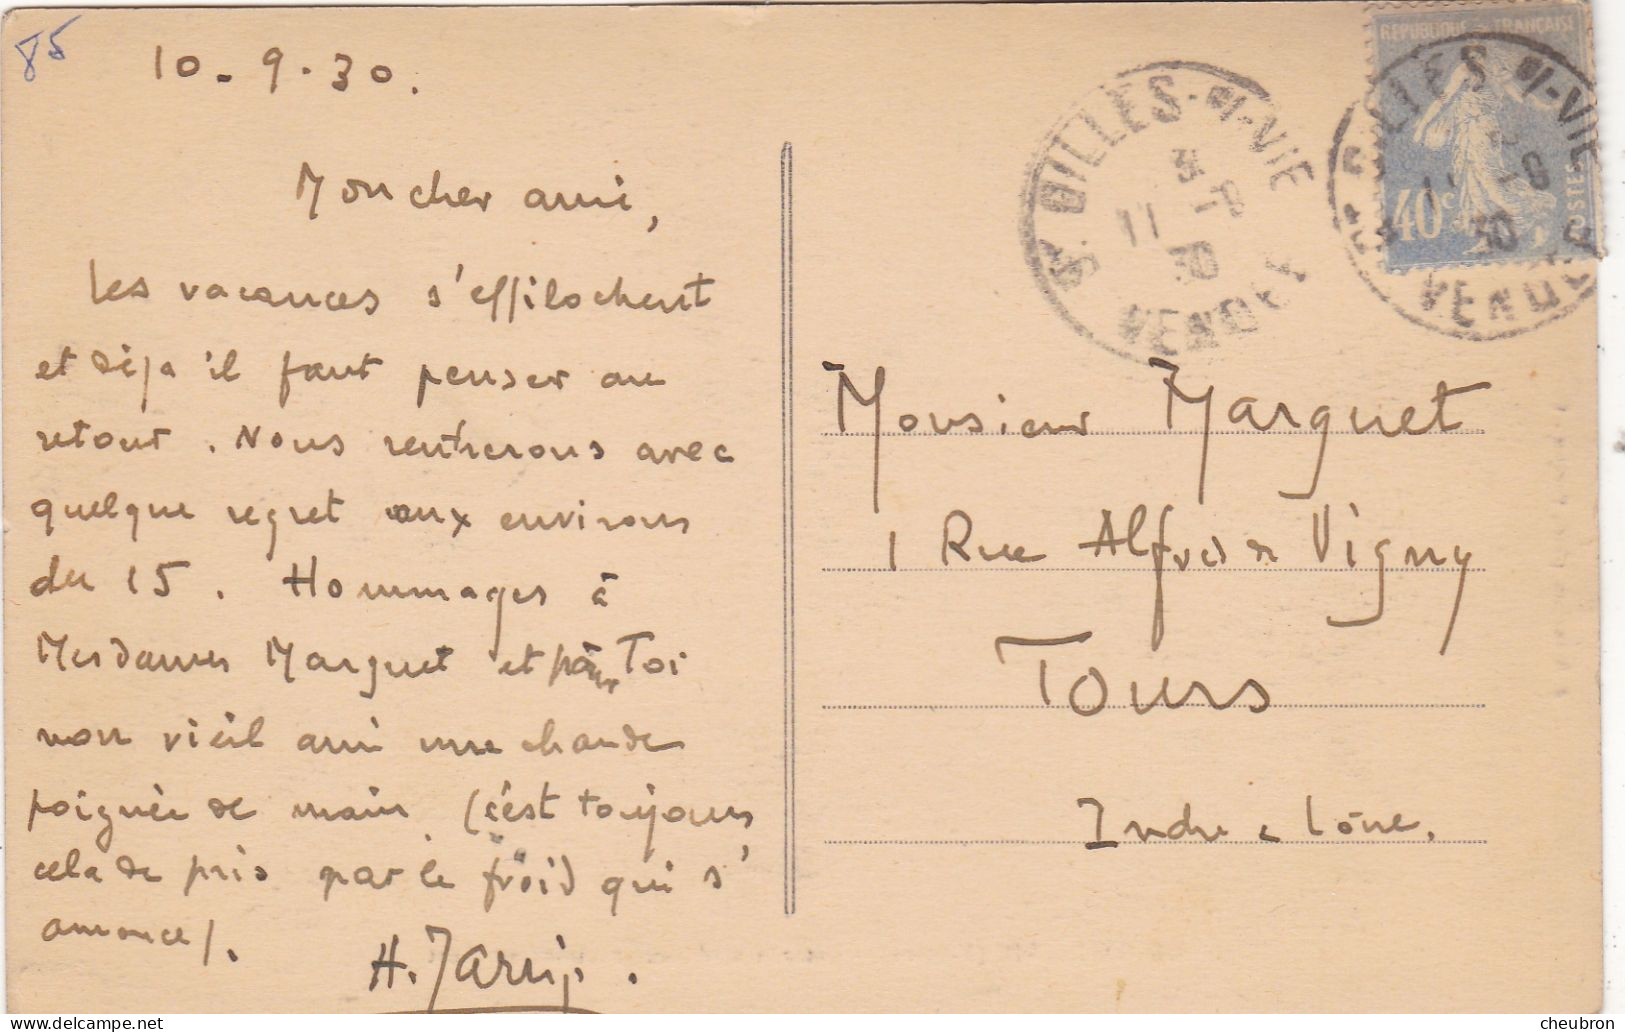 85
10-9-30.
Mon cher ami,
Les vacances s'effilochent
et déja il faut penser au
retour. Nous rentrerons avec
quelque regret aux environs
du 15. Hommages à
Mesdames Marguet et pour Toi
mon vieil ami une chaude
poignée de main (c'est toujours
cela de pris par le froid qui s'
annonce).
Sᵗ GILLES-S/-VIE
11 -9
30
VENDEE
REPUBLIQUE FRANÇAISE
40ᶜ
POSTES
GILLES S/-VIE
11 -9
30
VENDEE
Monsieur Marguet
1 Rue Alfred de Vigny
Tours
Indre & Loire.
delcampe.net
cheubron